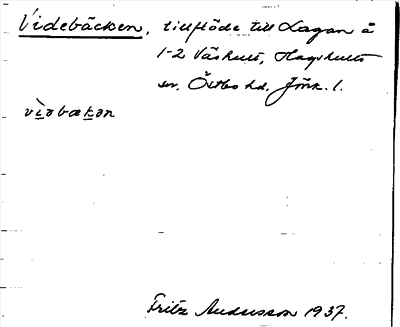 Videbäcken, tillflöde till Lagan å
1-2 Våshult, Hagshults
sn. Östbo hd. Jönk. l.
vìdbækən
Fritz Andersson 1937.